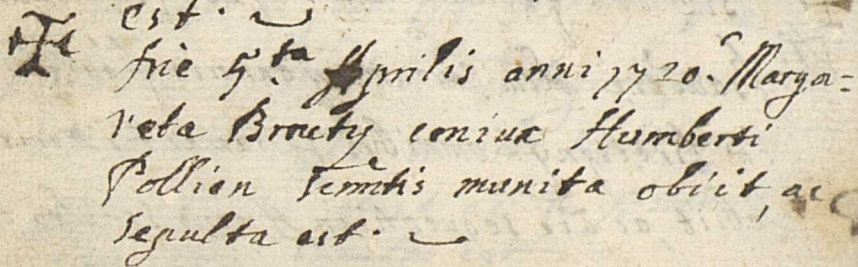 est.
✠ die 5.ta Aprilis anni 1720. Marga=
reta Brouty coniux Humberti
Pollien Scmtis munita obiit, ac
sepulta est.